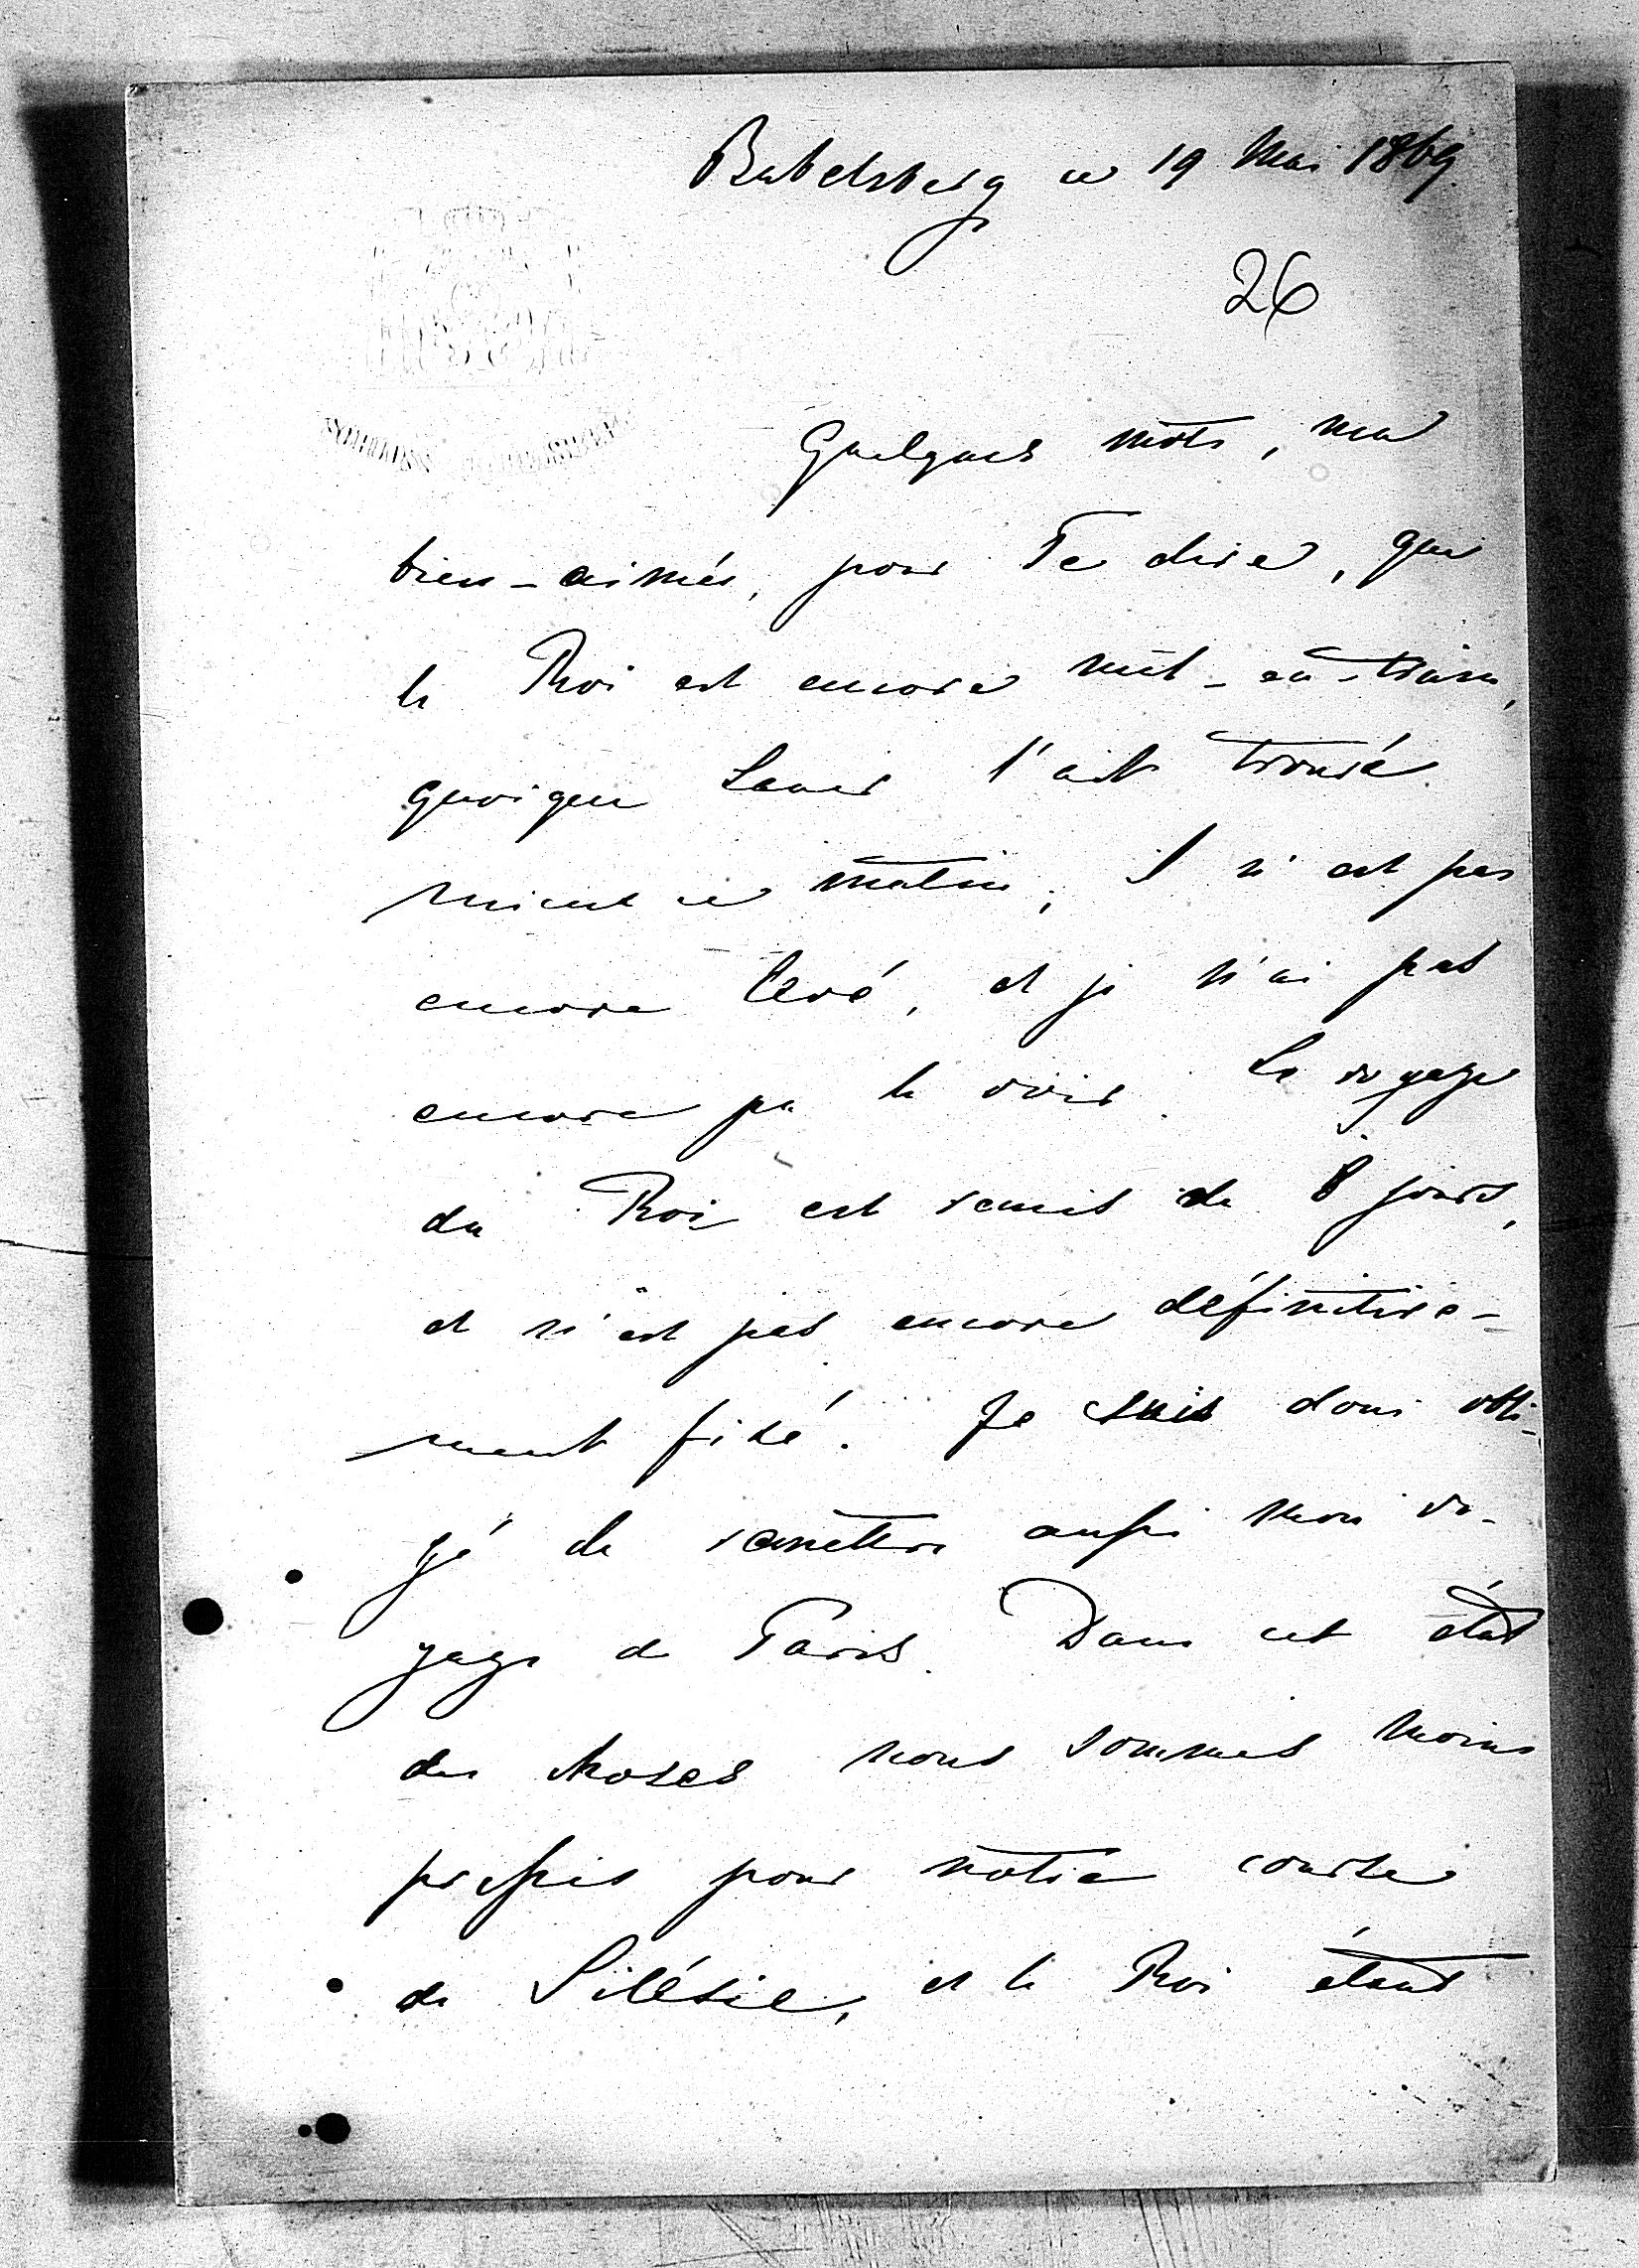 Babelsberg ce 19 Mai 1869.
26
Quelques mots, ma
bien-aimée, pour Te dire, que
le Roi est encore mal-en-train,
quoique Lauer l'ait trouvé
mieux ce matin. Il n'est pas
encore levé, et je n'ai pas
encore pu le voir. Le voyage
du Roi est remis de 8 jours,
et n'est pas encore définitive-
ment fixé. Je suis donc obli-
gé de remettre aussi mon vo-
yage de Paris. Dans cet état
des choses nous sommes moins
pressés pour notre course
de Silésie, et le Roi étant